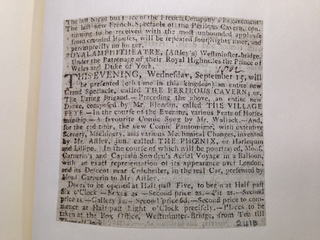 The last Night but three of the French Company's Engagement
The last new French Spectacle of the Perilous Cavern, con-
tinuing to be received with the most unbounded applause
from crouded Houses, will be repeated four Nights more, and
ROYAL AMPHITHEATRE, (Astley's) Westminster-bridge.
Under the Patronage of their Royal Highnesses the Prince of
Wales and Duke of York.
THIS EVENING, Wednesday, September 15, will
be presented (4th time in this kingdom) an entire new
Grand Spectacle, called THE PERILOUS CAVERN; or,
The Daring Brigand.—Preceding the above, an entire new
Dance, composed by Mr. called THE VILLAGE
FETE.—In the course of the Evening, various Feats of Horse-
manship.—A favourite Comic Song by Mr. Wallack.—And,
for the time, the new Comic Pantomime, with entirely
Scenery, Machinery, and various Mechanical Changes, invented
by Mr. Astley, jun. called THE PHŒNIX, or Harlequin
and Lillipo. In the course of which will be pourtrayed, Mons.
Garnerin's and Captain Sowden's Aerial Voyage in a Balloon,
with an exact representation of its appearance over London,
and its Descent near Colchester, in the real Car, presented by
Mons. Garnerin to Mr. Astley.
Doors to be opened at Half past Five, to begin at Half past
Six o'Clock.—Boxes 4s.—Second price 2s.—Pit 2s.—Second
price 1s.—Gallery 1s.—Second price 6d.—Second price to com-
mence at Half past Eight o'Clock precisely.—Places to be
taken at the Box Office, Westminster-Bridge, from Ten till